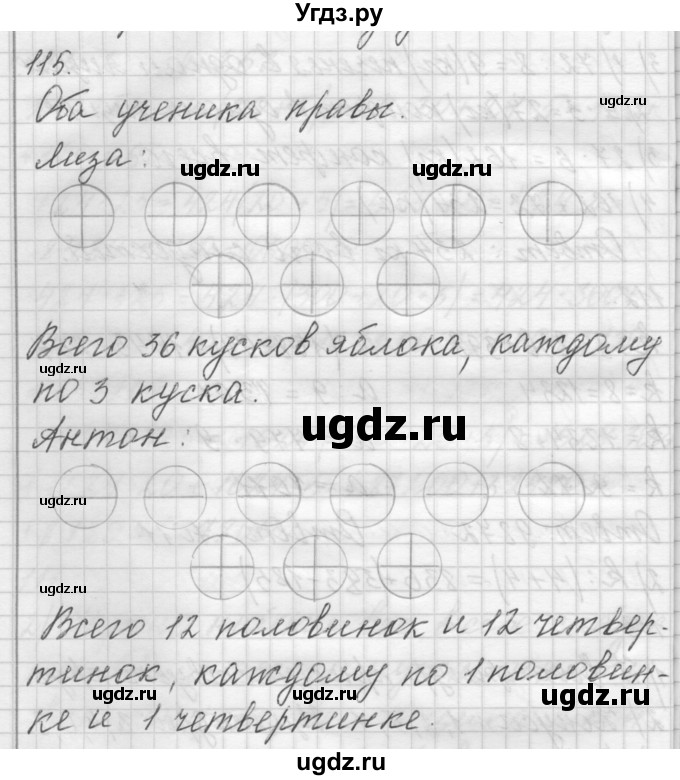 Угдз.ру
115.
Оба ученика правы.
ugdz.ru
Лиза:
ugdz.ru ugdz.ru
Всего 36 кусков яблока, каждому
ugdz.ru
по 3 куска.
ugdz.ru
Антон:
ugdz.ru
ugdz.ru
ugdz.ru
Всего 12 половинок и 12 четвер-
тинок, каждому по 1 половин-
ugdz.ru ugdz.ru ugdz.ru
ке и 1 четвертинке.
ugdz.ru